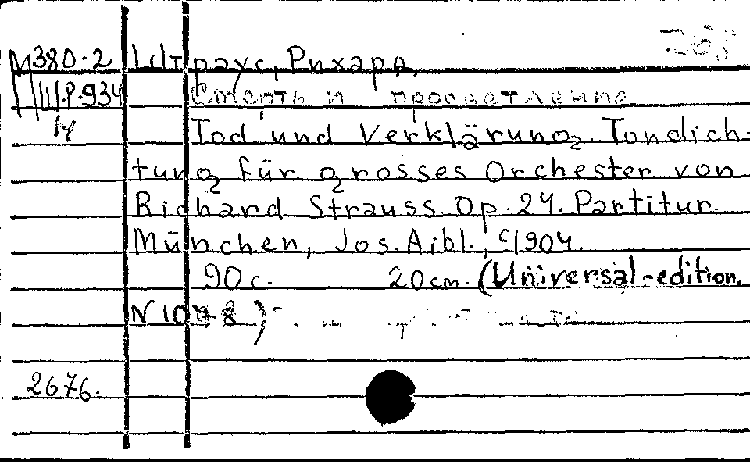 М380-2 Штраус, Рихард.
Ш.Р.934 Смерть и просветление
Tod und Verklärung. Tondich-
tung für grosses Orchester von
Richard Strauss. Op. 24. Partitur
München, Jos. Aibl., c1904.
90 с. 20 cm. (Universal-edition.
N 10
2676.